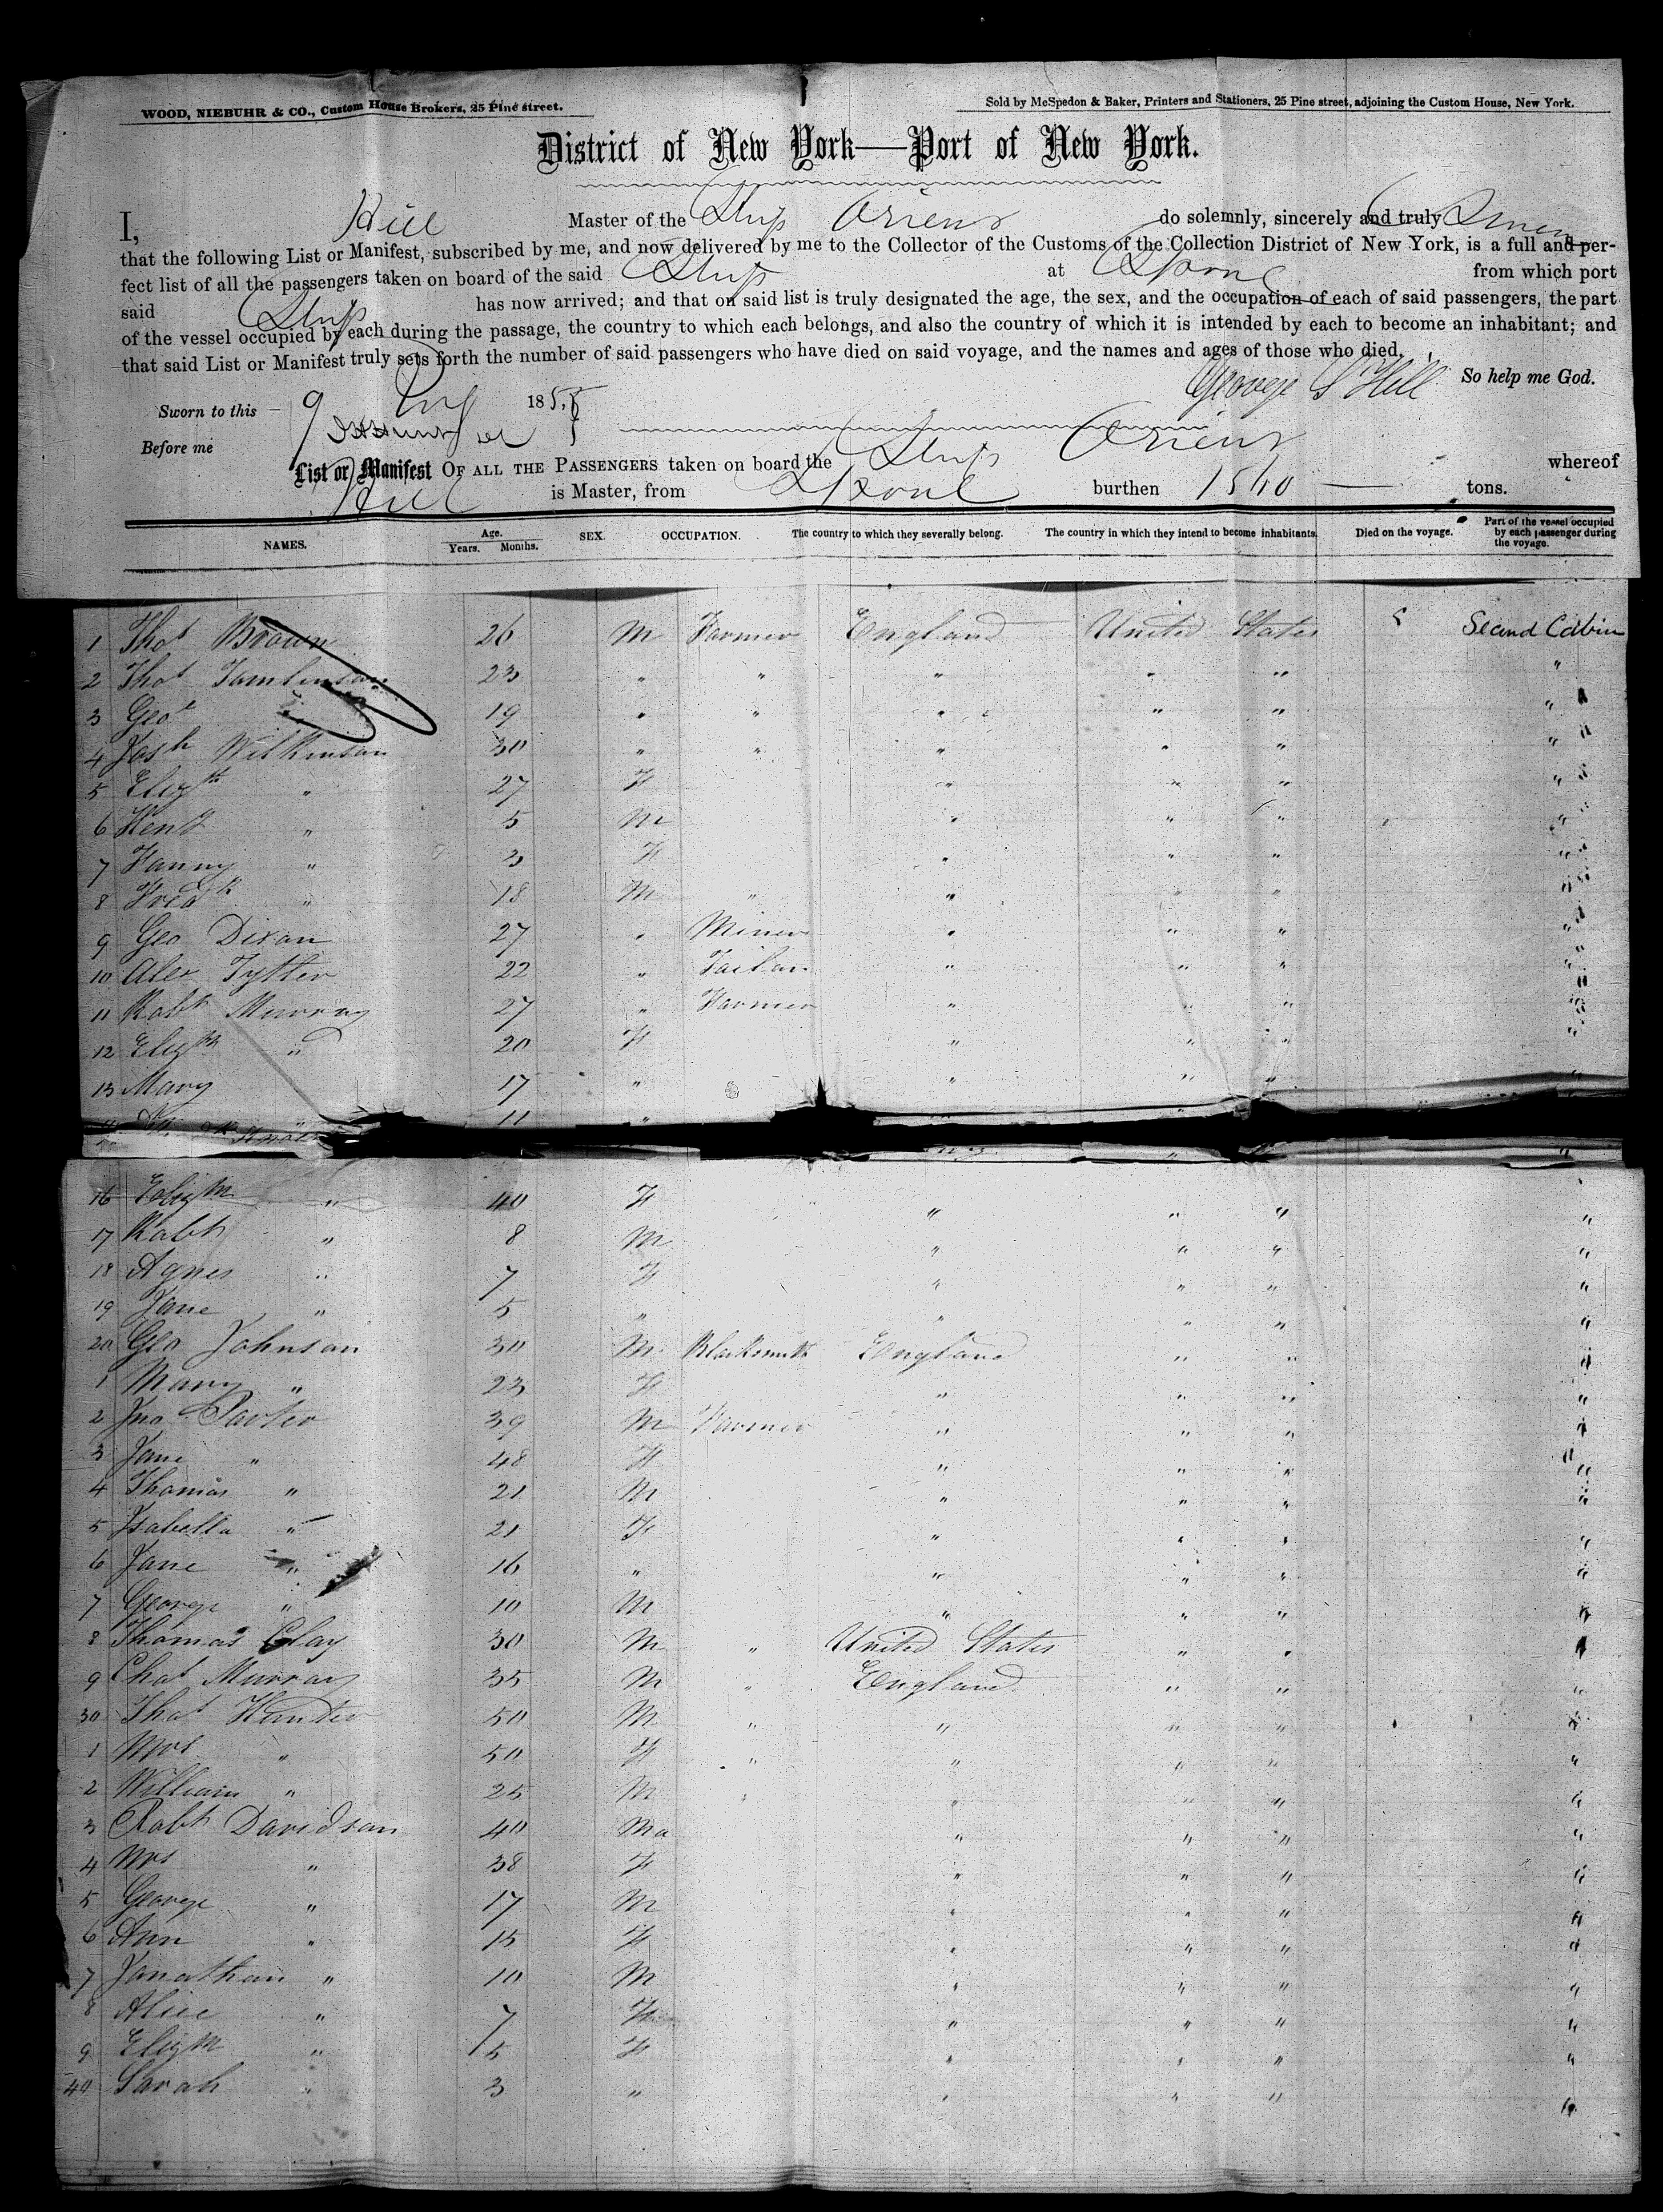 WOOD, NIEBUHR & CO., Custom House Brokers, 25 Pine street.
Sold by McSpedon & Baker, Printers and Stationers, 25 Pine street, adjoining the Custom House, New York.
District of New York—Port of New York.
I, Hill Master of the Ship Orient do solemnly, sincerely and truly Swear
that the following List or Manifest, subscribed by me, and now delivered by me to the Collector of the Customs of the Collection District of New York, is a full and per-
fect list of all the passengers taken on board of the said Ship at Lpool from which port
said Ship has now arrived; and that on said list is truly designated the age, the sex, and the occupation of each of said passengers, the part
of the vessel occupied by each during the passage, the country to which each belongs, and also the country of which it is intended by each to become an inhabitant; and
that said List or Manifest truly sets forth the number of said passengers who have died on said voyage, and the names and ages of those who died.
George S Hill So help me God.
Sworn to this 9 185
Before me
List or Manifest OF ALL THE PASSENGERS taken on board the Ship Orient whereof
Hill is Master, from Lpool burthen 1560 tons.
NAMES. Age. Years. Months. SEX. OCCUPATION. The country to which they severally belong. The country in which they intend to become inhabitants. Died on the voyage. Part of the vessel occupied by each passenger during the voyage.
1 Thos Brown 26 M Farmer England United States Second Cabin
2 Thos Tomlinson 23 " " " " " "
3 Geo 19 " " " " " "
4 Josh Wilkinson 30 " " " " " "
5 Elizth " 27 F " " " "
6 Heny " 5 M " " " "
7 Fanny " 3 F " " " "
8 Fredk " 18 M " " " " "
9 Geo Dixon 27 " Miner " " " "
10 Alex Tytler 22 " Tailor " " " "
11 Robt Murray 27 " Farmer " " " "
12 Elizth " 20 F " " " "
13 Mary 17 " " " " "
11 "
16 Elizth " 40 F " " " "
17 Robt " 8 M " " " "
18 Agnes " 7 F " " " "
19 Jane " 5 " " " " "
20 Geo Johnson 30 M Blacksmith England " " "
1 Mary " 23 F " " " "
2 Jno Porter 39 M Farmer " " " "
3 Jane " 48 F " " " "
4 Thomas " 21 M " " " "
5 Isabella " 21 F " " " "
6 Jane " 16 " " " " "
7 George " 10 M " " " "
8 Thomas Clay 30 M " United States " " "
9 Chas Murray 35 M " England " " "
30 Thos Hunter 50 M " " " " "
1 Mrs " 50 F " " " " "
2 William " 25 M " " " " "
3 Robt Davidson 40 Ma " " " "
4 Mrs " 38 F " " " "
5 George " 17 M " " " "
6 Ann " 15 F " " " "
7 Jonathan " 10 M " " " "
8 Alice " 7 F " " " "
9 Elizth " 5 F " " " "
40 Sarah " 3 " " " " "